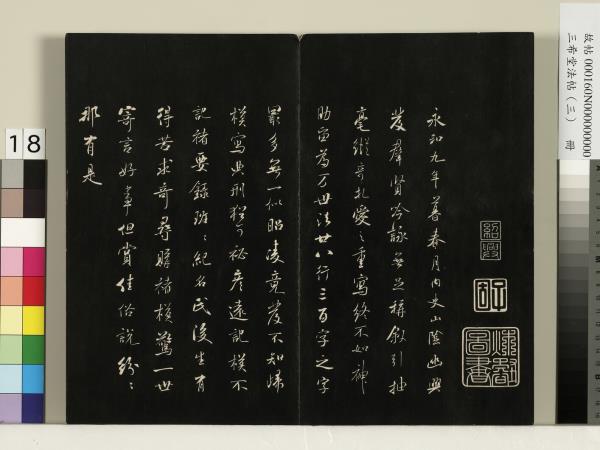 永和九年暮春月內史山陰幽興
發羣賢吟詠無足稱敘引抽
毫縱奇札愛之重寫終不如神
助留為万世法廿八行三百字之字
最多無一似昭陵竟發不知歸
模寫典刑猶可祕彦遠記模不
記褚要錄班班紀名氏後生有
得苦求奇尋購褚模驚一世
寄言好事但賞佳俗說紛紛
那有是
紹興
圖書
故帖 000160N000000000
三希堂法帖(三) 冊
18